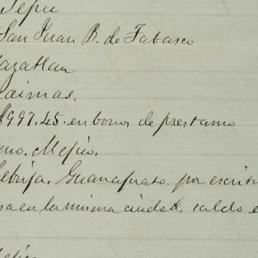 Tepic
San Juan B. de Tabasco
Mazatlan
$997.45 en bonos de prestamo
Mejico.
Guanajuato por escritu
en la misma ciudad. saldo e